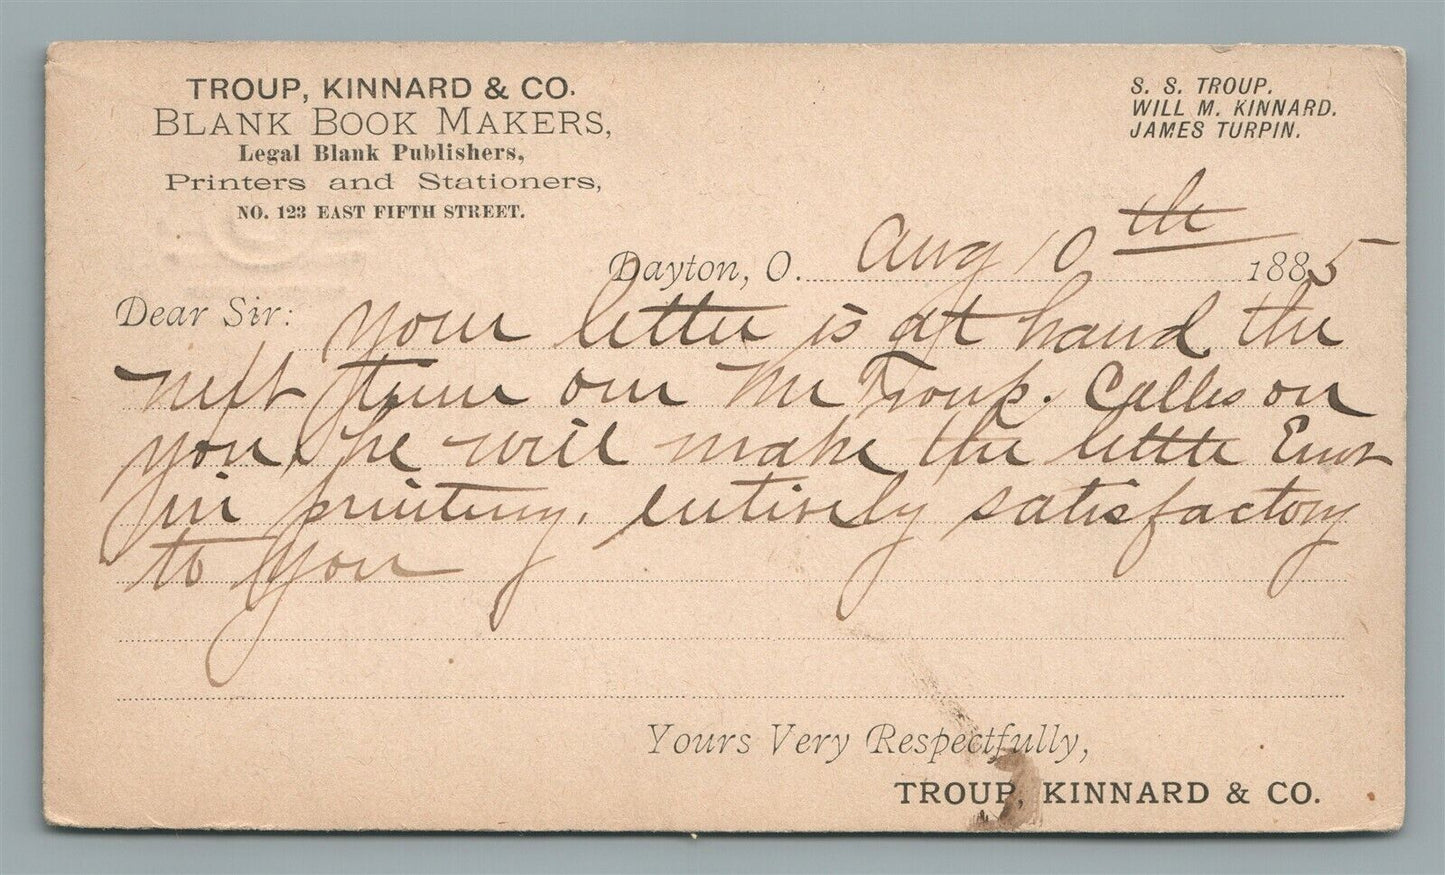 TROUP, KINNARD & CO.
BLANK BOOK MAKERS,
Legal Blank Publishers,
Printers and Stationers,
NO. 123 EAST FIFTH STREET.
S. S. TROUP.
WILL M. KINNARD.
JAMES TURPIN.
Dayton, O. Aug 10th 1885
Dear Sir: Your letter is at hand the
next time our Mr Troup. Calls on
you, he will make the little
in printing. entirely satisfactory
to you
Yours Very Respectfully,
TROUP, KINNARD & CO.